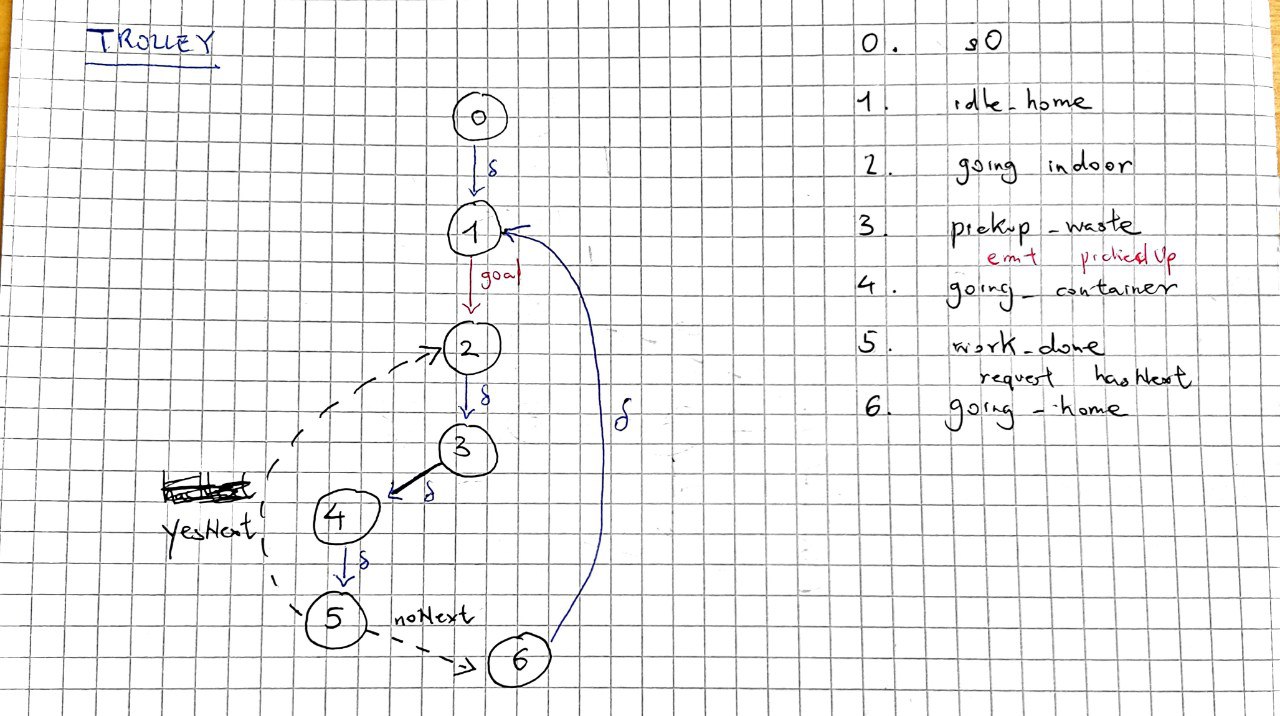 TROLLEY
0
δ
1
goal
2
δ
3
δ
4
δ
5
yesNext
noNext
6
δ
0. s0
1. idle_home
2. going indoor
3. pickup_waste
emit pickedUp
4. going_container
5. work_done
request hasNext
6. going_home